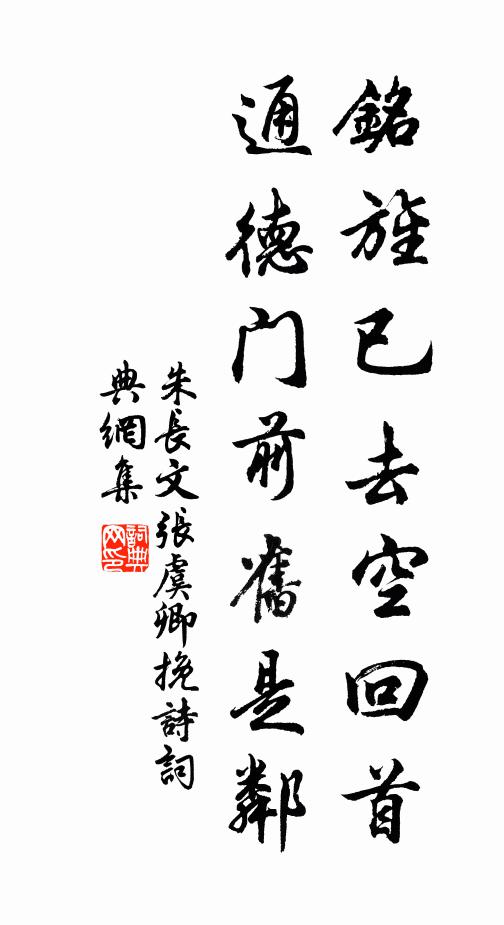 銘旌已去空回首
通德門前舊是鄰
朱長文張虞卿挽詩詞
典網集
詞典
网印